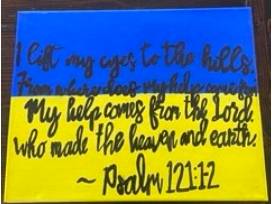 I lift my eyes to the hills.
From where does my help come from
My help comes from the Lord
who made the heaven and earth.
~ Psalm 121:1-2